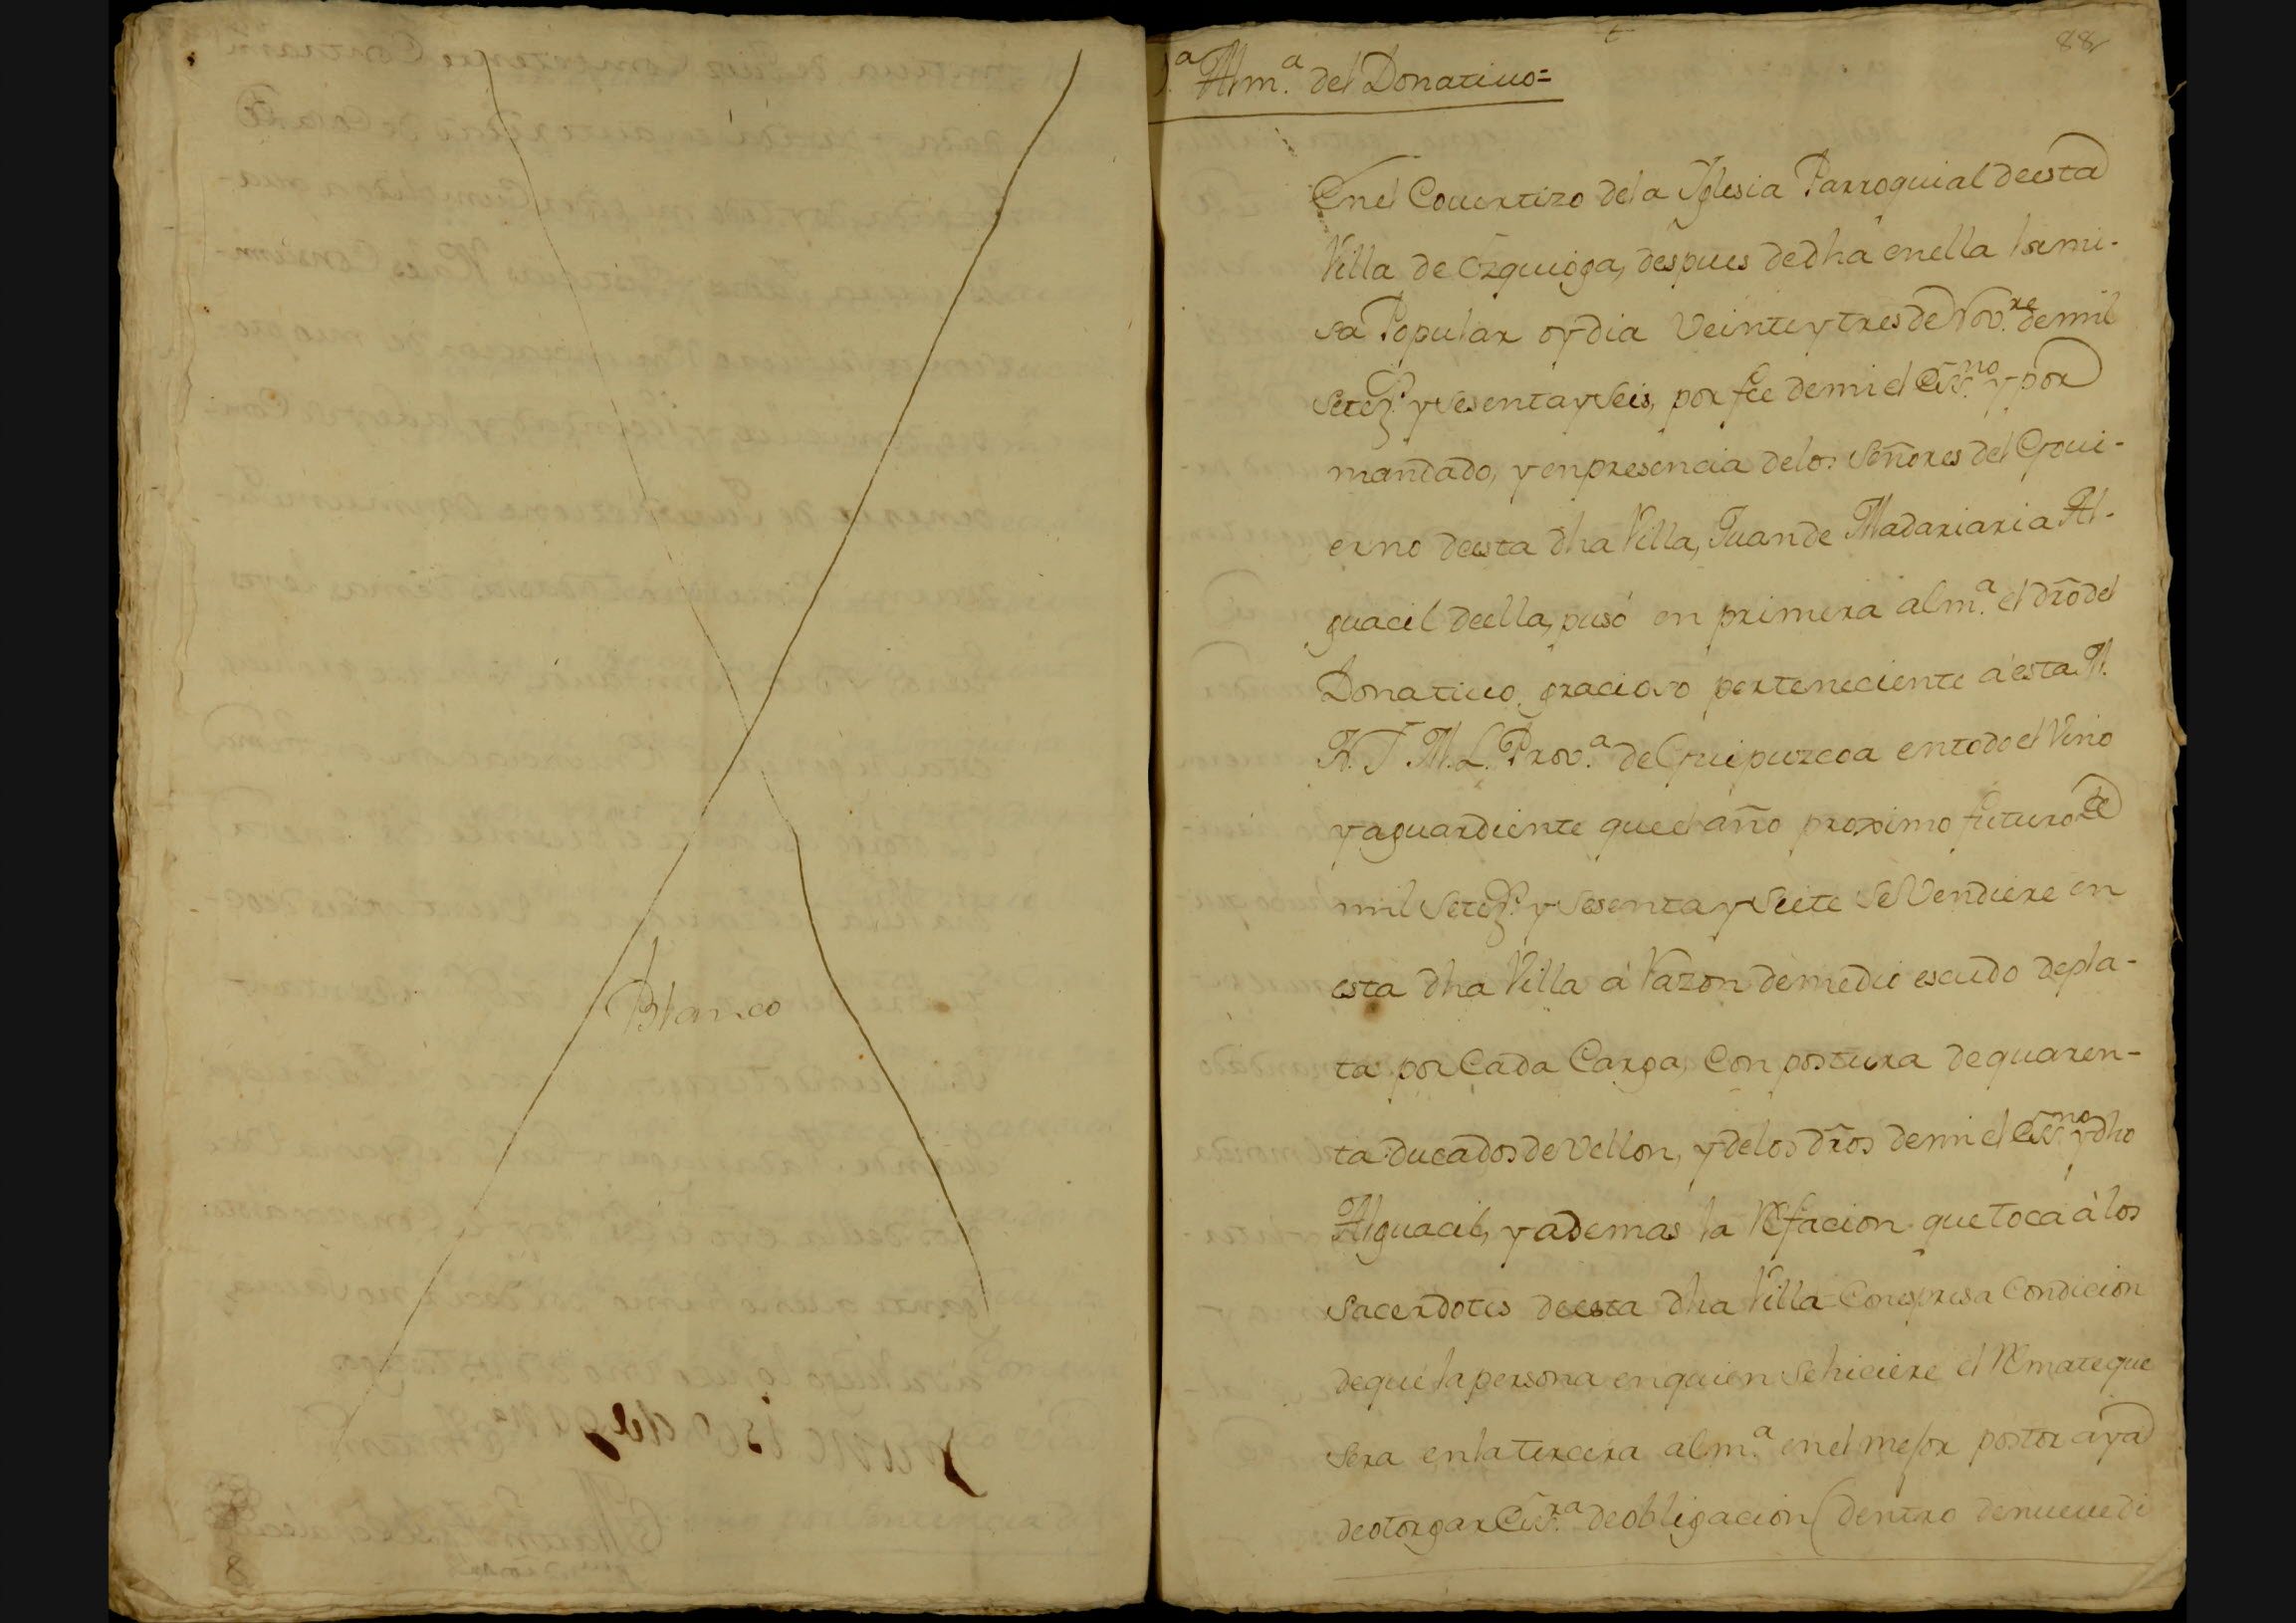 Blanco
88
1.ª Alm.ª del Donatiuo=
En el Couertizo de la Yglesia Parroquial de esta
Villa de Ezquioga, despues de dha en ella la mi-
sa Popular oy dia Veinte y tres de Nov.re de mil
setez.s y sesenta y seis, por fee de mi el Ess.no y por
mandado, y en presencia de los Señores del Goui-
erno de esta dha Villa, Juan de Madariaria Al-
guacil de ella, pusó en primera alm.ª el dro del
Donatiuo gracioso perteneciente á esta M.
N. Y M. L. Prov.ª de Guipuzcoa en todo el Vino
y aguardiente que el año proximo futuro de
mil setez.s y sesenta y siete se Vendiere en
esta dha Villa á Razon de medio escudo de pla-
ta por Cada Carga, Con postura de quaren-
ta ducados de Vellon, y de los dros de mi el Ess.no y dho
Alguacil, y ademas la Refacion que toca á los
sacerdotes de esta dha Villa Con espresa Condicion
de que la persona en quien se hiciere el Remate que
sera en la tercera alm.ª en el mejor postor aya
de otorgar Ess.ra de obligacion (dentro de nueue di